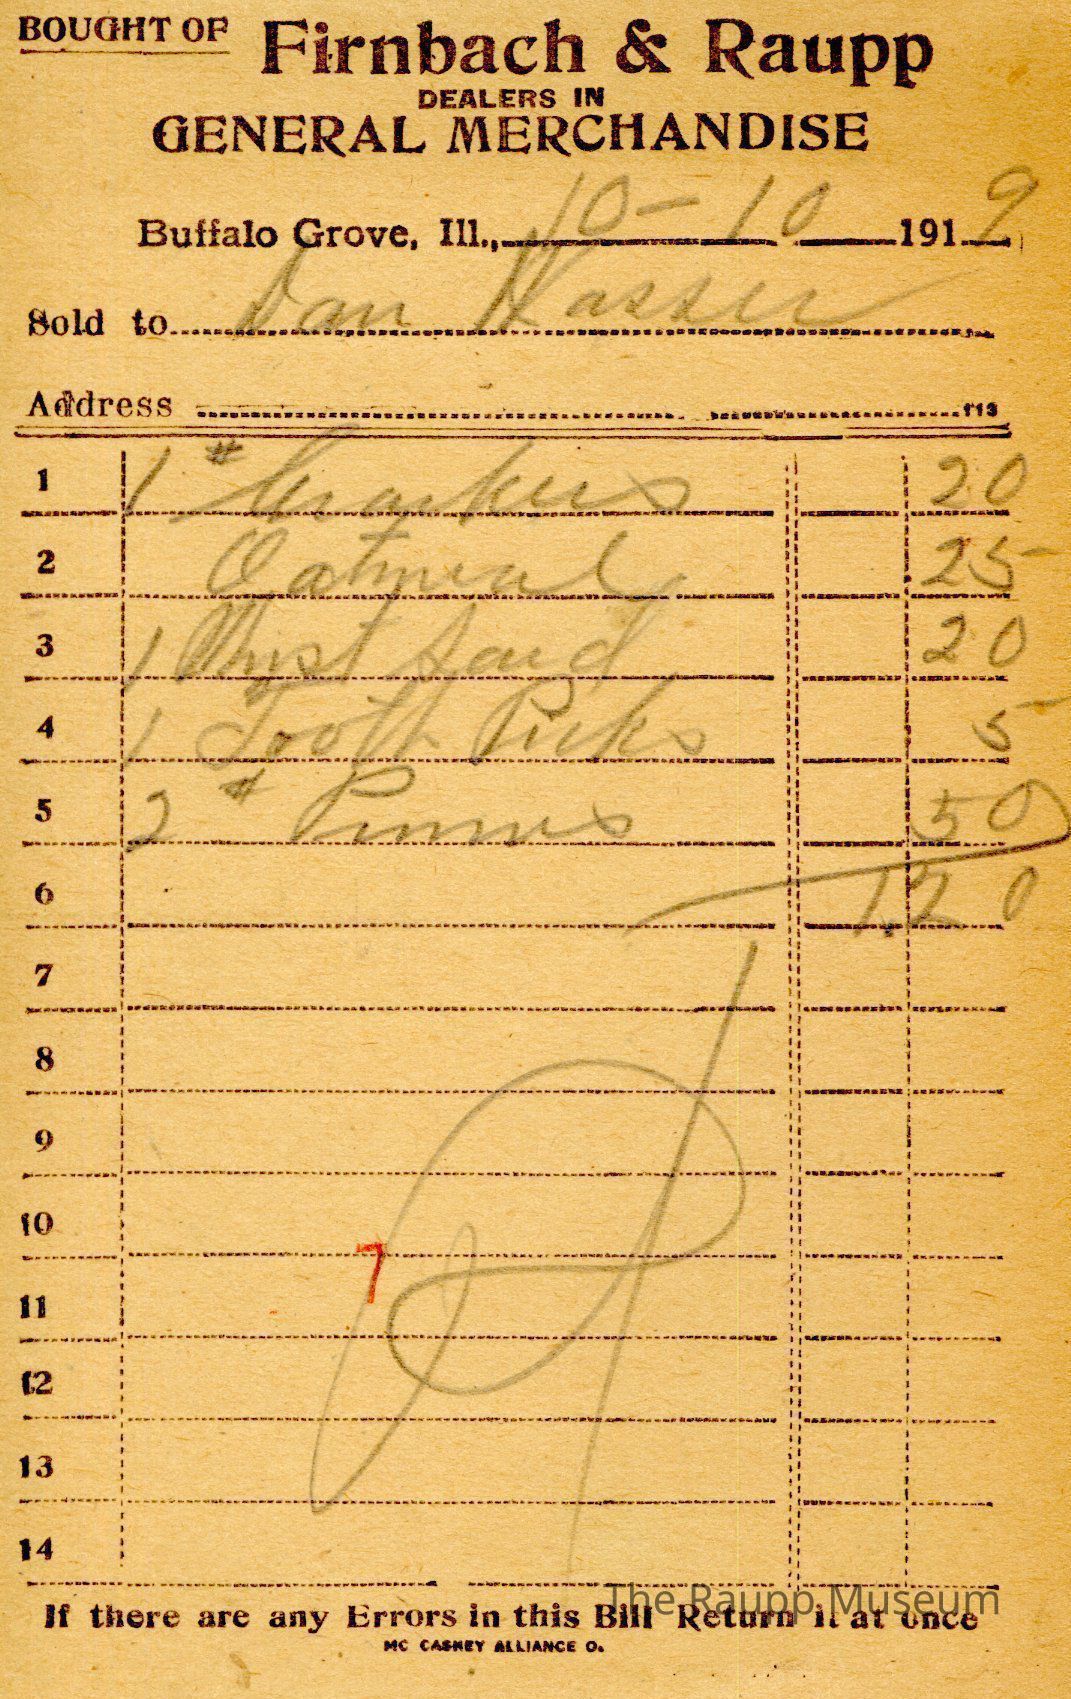 BOUGHT OF Firnbach & Raupp
DEALERS IN
GENERAL MERCHANDISE
Buffalo Grove, Ill., 10-10 1919
Sold to Dan
Address 113
1 1 # Crackers 20
2 Oatmeal 25
3 1 20
4 1 Tooth Picks 5
5 2 # 50
6 1.20
7
8
9
10
7
11
12
13
14
The Raupp Museum
If there are any Errors in this Bill Return it at once
MC CASKEY ALLIANCE O.